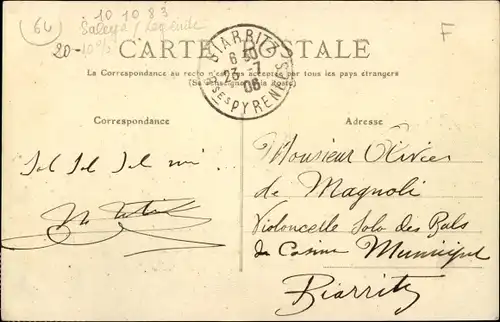 64
10 10 83
20-
F
CARTE POSTALE
BIARRITZ
6 30
23-7
06
Bses PYRENEES
La Correspondance au recto n'est pas acceptée par tous les pays étrangers
(Se renseigner à la Poste)
Correspondance
Adresse
Sol Sol Sol mi.
Monsieur Olivier
de Magnoli
Violoncelle Solo des Bals
du Casino Municipal
Biarritz